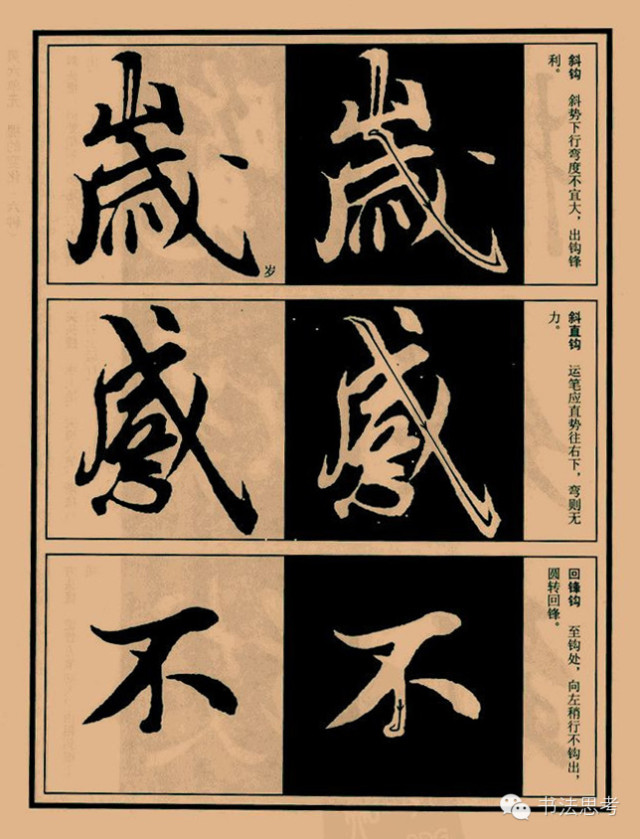 斜钩 斜势下行弯度不宜大，出钩锋
利。
歲
歲
岁
斜直钩 运笔应直势往右下，弯则无
力。
感
感
回锋钩 至钩处，向左稍行不钩出，
圆转回锋。
不
不
书法思考